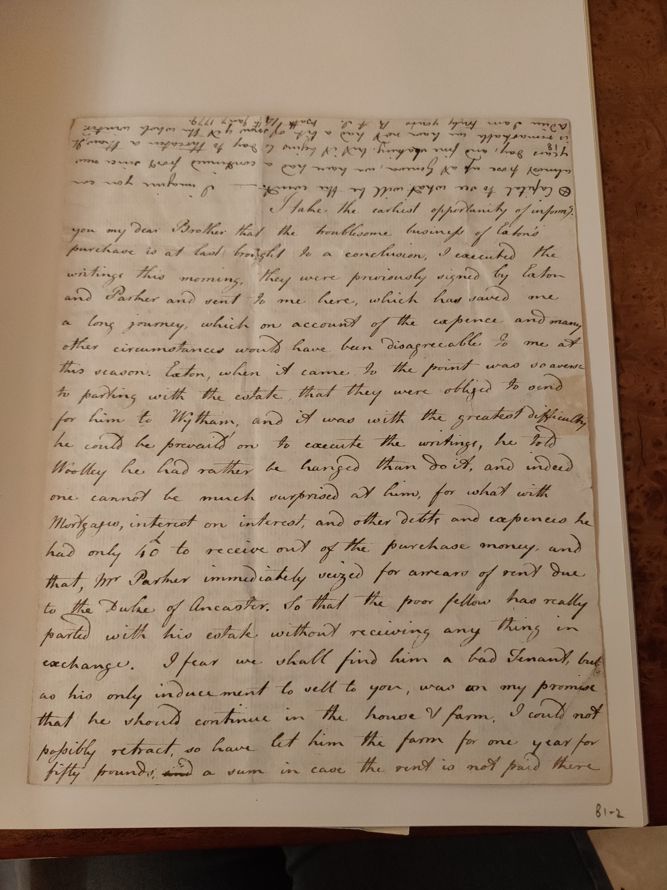 Capital to see what will be the I imagine you
almost froze up at Genoa, we have had a continued frost since new
years day, and fine skating, but it begins to day to threaten a thaw. It
is remarkable we have not had a bit of snow yet the whole winter.
Adieu I am truly yours Bath Jany 1779.
I take the earliest opportunity of informg.
you my dear Brother that the troublesome business of Eaton's
purchase is at last brought to a conclusion, I executed the
writings this morning, they were previously signed by Eaton
and Parker and sent to me here, which has saved me
a long journey, which on account of the expence and many
other circumstances would have been disagreeable to me at
this season. Eaton, when it came to the point was so averse
to parting with the estate, that they were obliged to send
for him to Wytham, and it was with the greatest difficulty
he could be prevail'd on to execute the writings, he told
Woolley he had rather be hanged than do it, and indeed
one cannot be much surprised at him, for what with
Mortgages, interest on interest, and other debts and expences he
had only 40£ to receive out of the purchase money, and
that, Mr Parker immediately seized for arrears of rent due
to the Duke of Ancaster. So that the poor fellow has really
parted with his estate without receiving any thing in
exchange. I fear we shall find him a bad Tenant, but
as his only inducement to sell to you, was on my promise
that he should continue in the house & farm, I could not
possibly retract, so have let him the farm for one year for
fifty pounds, a sum in case the rent is not paid there
81-2